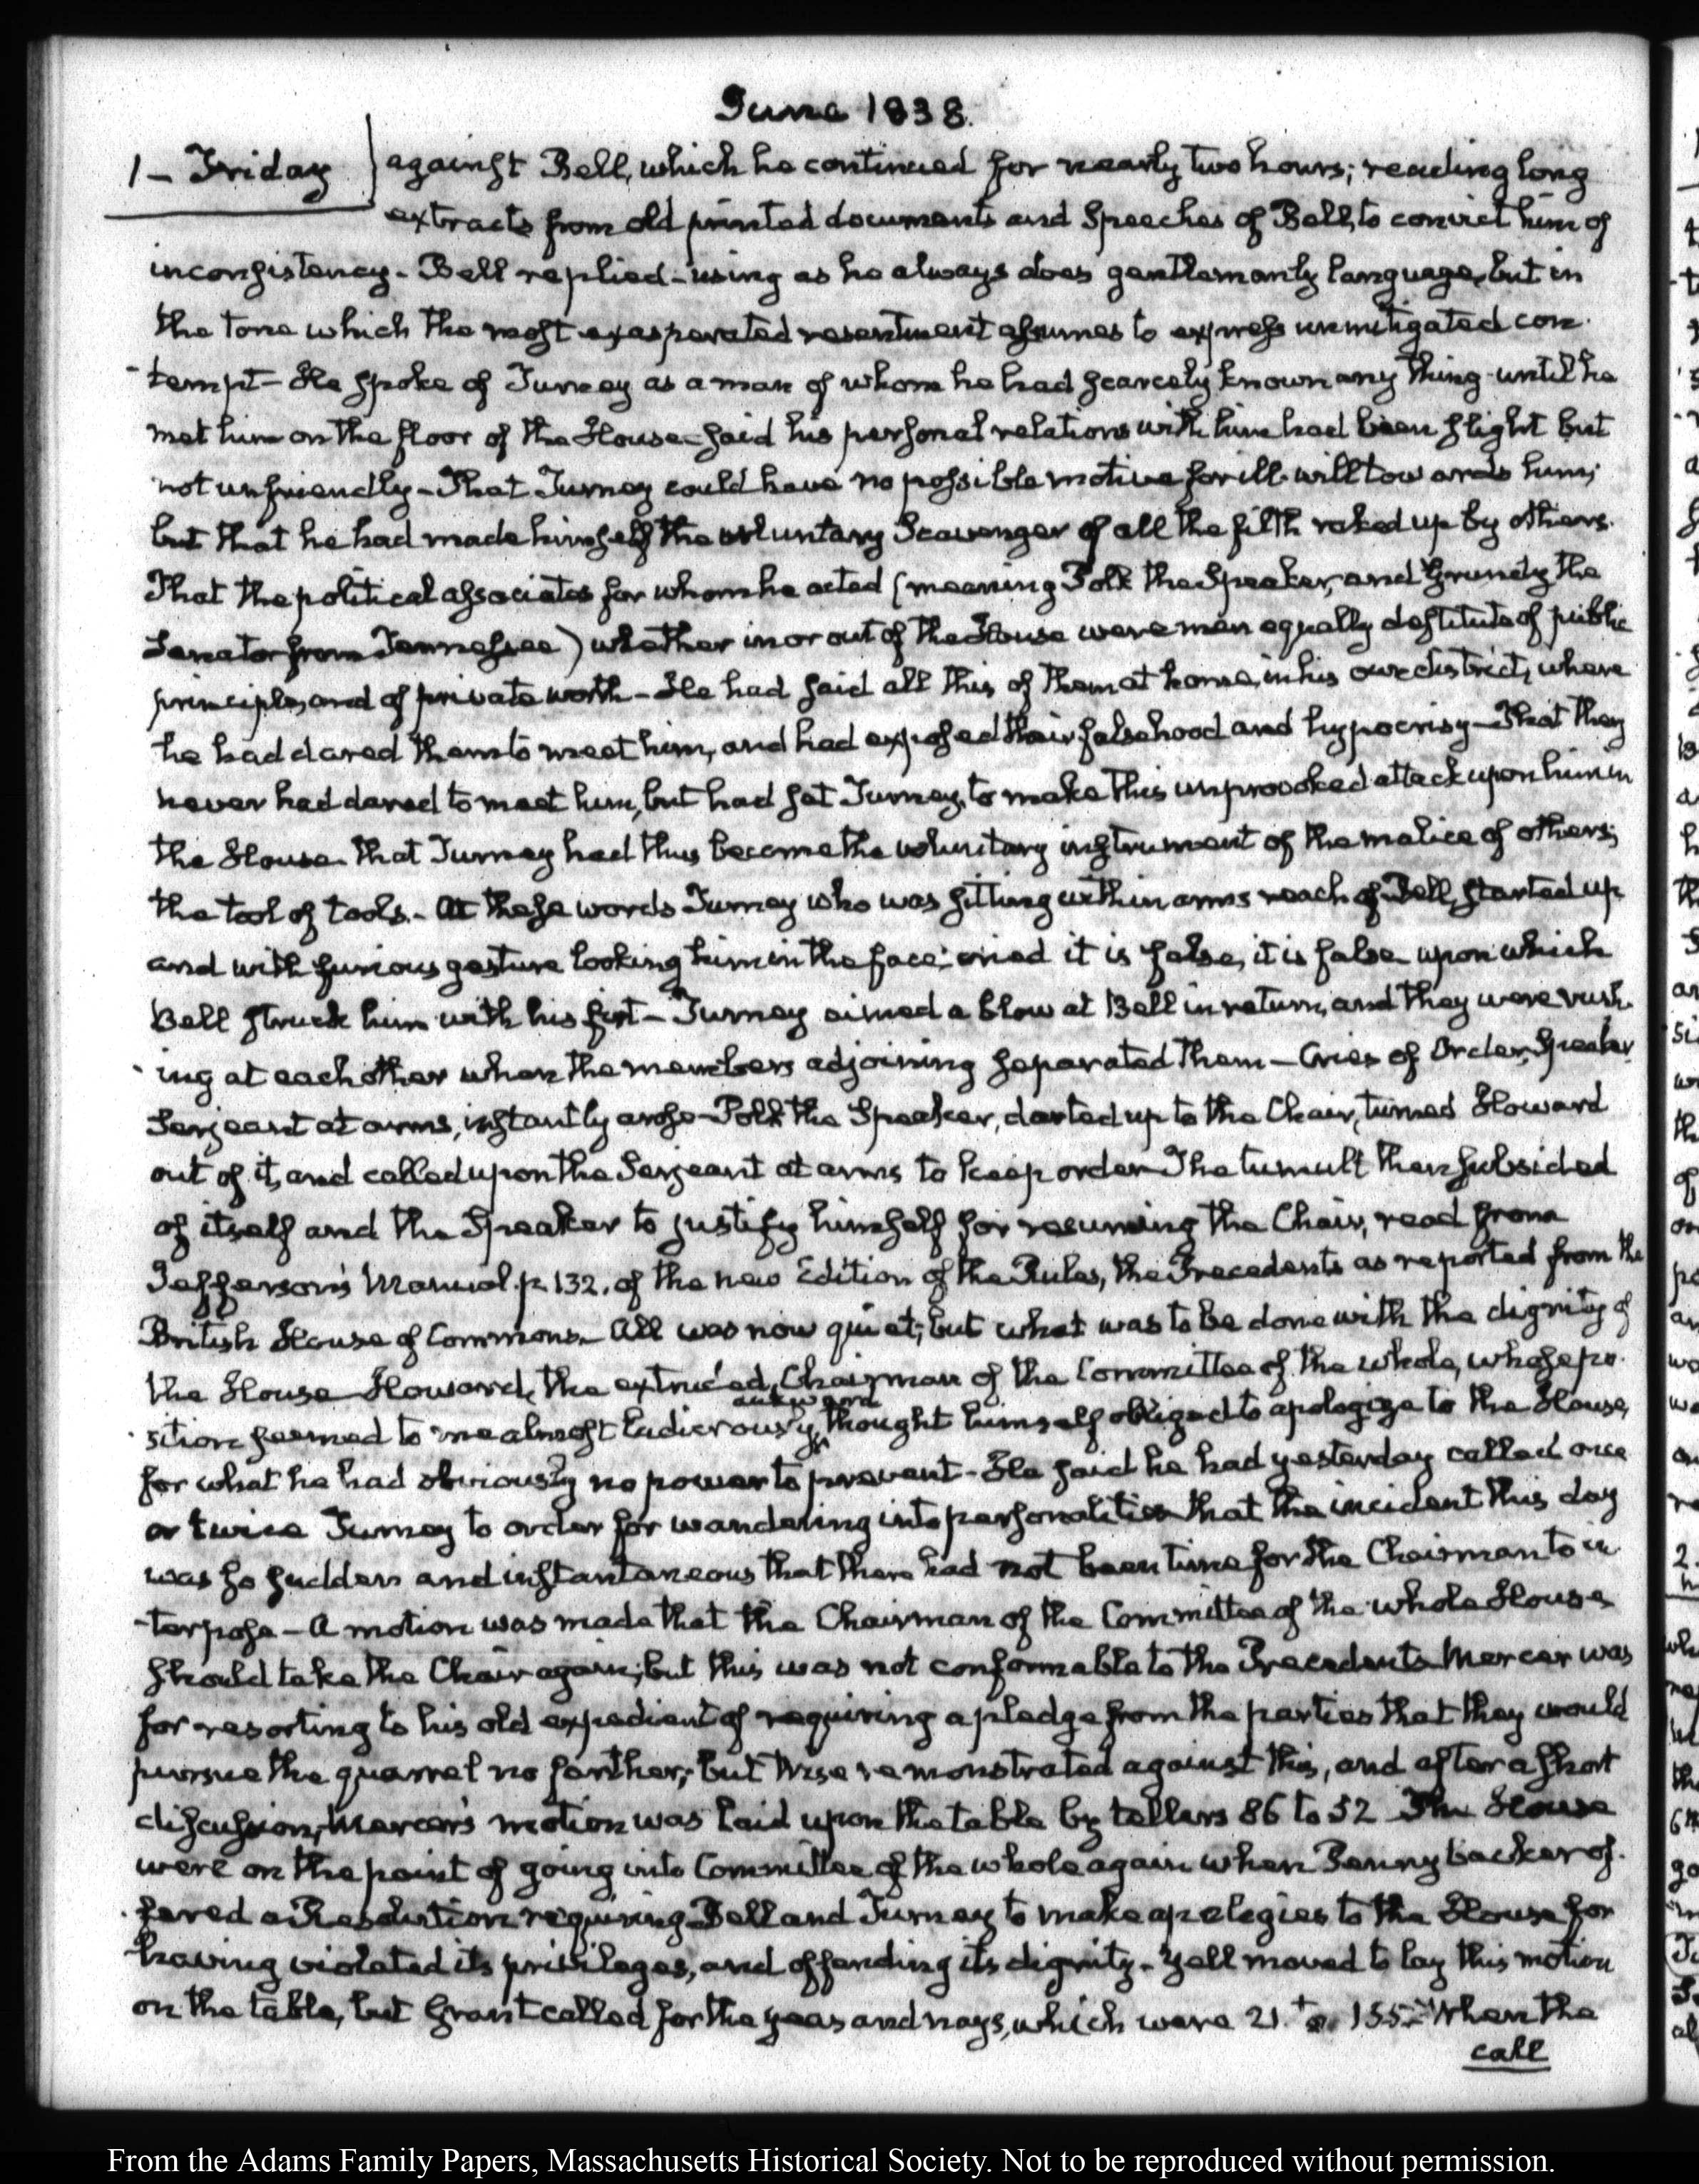 June 1838.
1 – Friday
against Bell, which he continued for nearly two hours; reading long
extracts from old printed documents and Speeches of Bell, to convict him of
inconsistency – Bell replied – using as he always does gentlemanly language, but in
the tone which the most exasperated resentment assumes to express unmitigated con-
-tempt – He spoke of Turney as a man of whom he had scarcely known any thing until he
met him on the floor of the House – said his personal relations with him had been slight but
not unfriendly – That Turney could have no possible motive for ill-will towards him;
but that he had made himself the voluntary Scavenger of all the filth raked up by others.
That the political associates for whom he acted (meaning Polk the Speaker, and Grundy the
Senator from Tennessee) whether in or out of the House were men equally destitute of public
principle, and of private worth – He had said all this of them at home, in his own district, where
he had dared them to meet him, and had exposed their falsehood and hypocrisy – That they
never had dared to meet him, but had set Turney, to make this unprovoked attack upon him in
the House – that Turney had thus become the voluntary instrument of the malice of others;
the tool of tools. – At these words Turney who was sitting within arms reach of Bell, started up
and with furious gesture looking him in the face; cried it is false, it is false upon which
Bell struck him with his fist – Turney aimed a blow at Bell in return, and they were rush-
-ing at each other when the members adjoining separated them – Cries of Order, Speaker
Serjeant at arms, instantly arose – Polk the Speaker, darted up to the Chair, turned Howard
out of it, and called upon the Serjeant at arms to keep order – The tumult then subsided
of itself and the Speaker to justify himself for resuming the Chair, read from
Jefferson's Manual. p. 132. of the new Edition of the Rules, the Precedents as reported from the
British House of Commons – All was now quiet; but what was to be done with the dignity of
the House – Howard, the extruded, Chairman of the Committee of the whole, whose po-
awkward
-sition seemed to me almost ludicrously, thought himself obliged to apologize to the House,
for what he had obviously no power to prevent – He said he had yesterday called once
or twice Turney to order for wandering into personalities – that the incident this day
was so sudden and instantaneous that there had not been time for the Chairman to in-
-terpose – A motion was made that the Chairman of the Committee of the whole House
should take the Chair again; but this was not conformable to the Precedents – Mercer was
for resorting to his old expedient of requiring a pledge from the parties that they would
pursue the quarrel no farther; but Wise remonstrated against this, and after a short
discussion, Mercer's motion was laid upon the table by tellers 86 to 52 The House
were on the point of going into Committee of the whole again when Pennybacker of-
-fered a Resolution requiring Bell and Turney to make apologies to the House for
having violated its privileges, and offending its dignity – Yell moved to lay this motion
on the table, but Grant called for the yeas and nays, which were 21. to 155 – When the
call
From the Adams Family Papers, Massachusetts Historical Society. Not to be reproduced without permission.